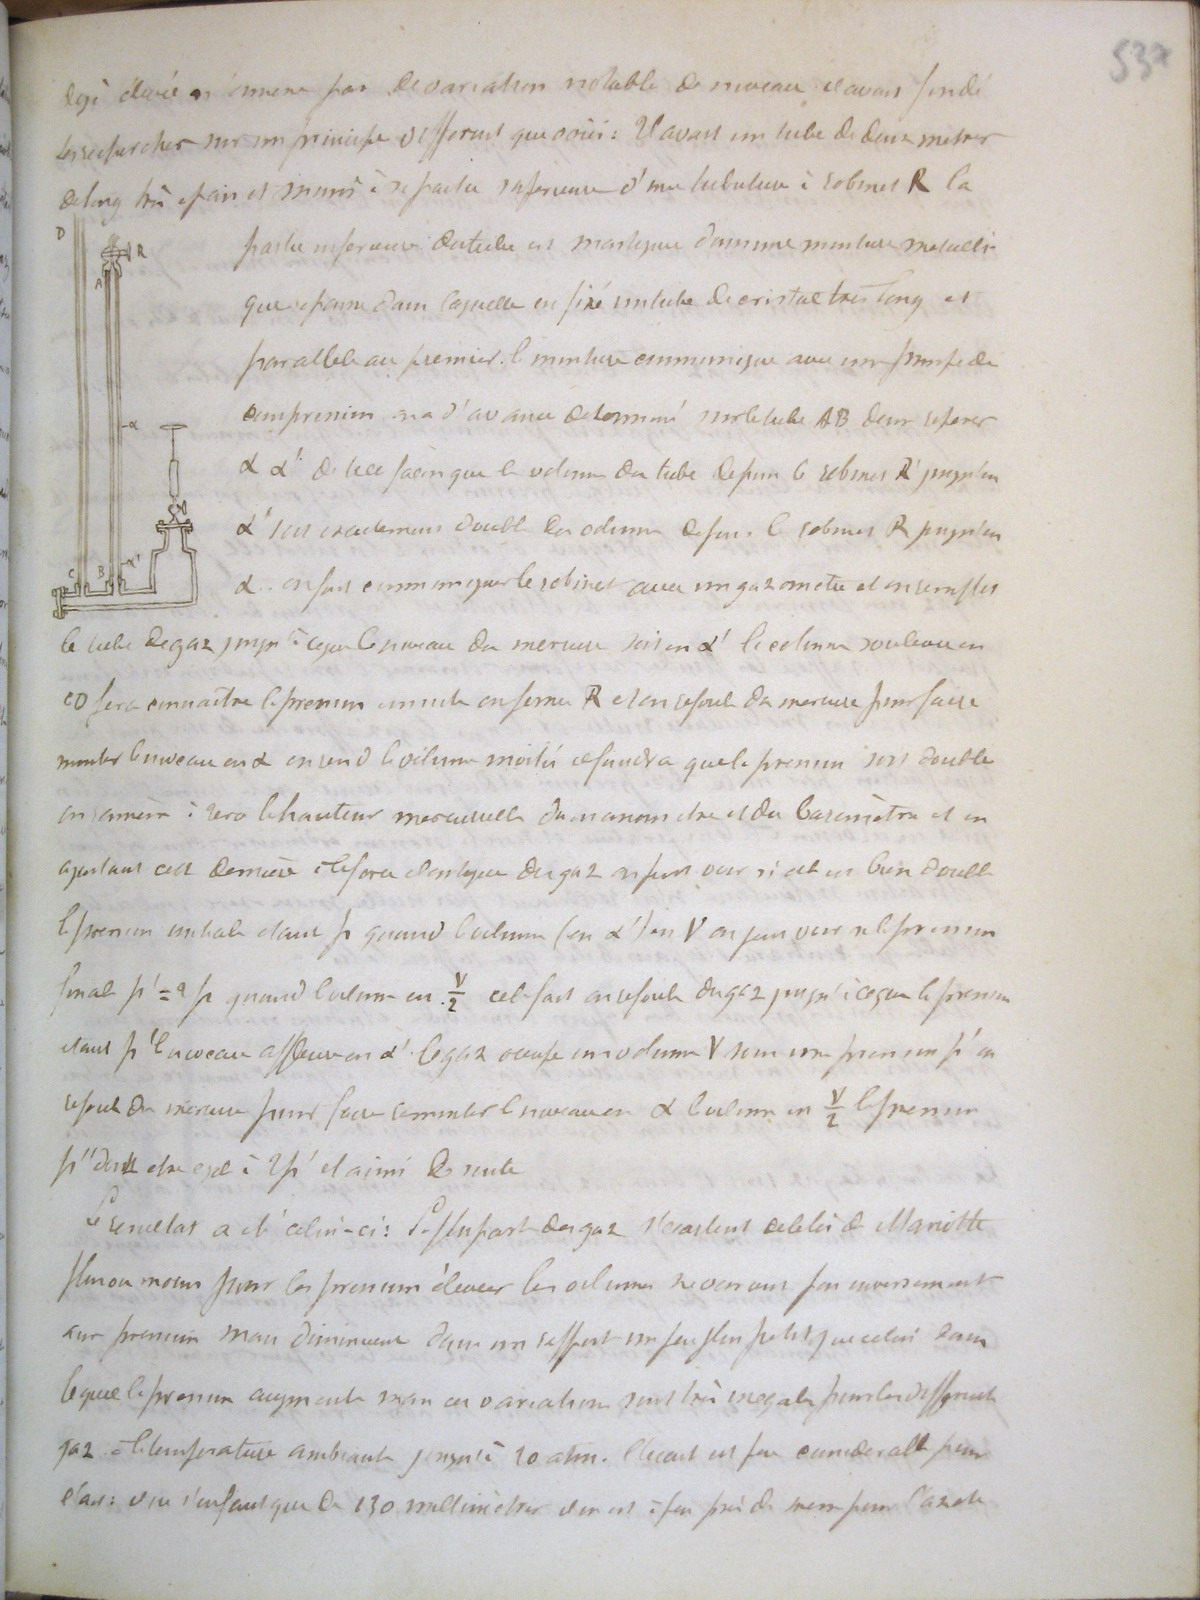 537
déjà élevée n'amène pas de variation notable de niveau et avait fondé
ses recherches sur un principe différent que voici : Il avait un tube de deux metres
de long très epais et muni à sa partie superieure d'une tubulure à robinet R la
D
R
A
partie inferieure du tube est mastiquée dans une monture metalli
que epaisse dans laquelle est fixé un tube de cristal très long et
parallele au premier. la monture communique avec une pompe de
compression on a d'avance determiné sur le tube AB deux reperes
α
α α' de telle façon que le volume du tube depuis le robinet R jusqu'en
α' soit exactement double du volume depuis le robinet R jusqu'en
α'
B
C
α. on fait communiquer le robinet avec un gazometre et on remplit
le tube de gaz jusqu'à ce que le niveau du mercure soit en α' la colonne soulevée en
CD fera connaître la pression ensuite on ferme R et on refoule du mercure pour faire
monter le niveau en α on rend le volume moitié il faudra que la pression soit double
on ramène à zero la hauteur mercurielle du manometre et du barometre et en
ajoutant cette derniere à la force elastique du gaz on peut voir si elle est bien double
la pression initiale etant p quand le volume (en α') est V on peut voir si la pression
finale p' = 2p quand le volume est V/2 cela fait on refoule du gaz jusqu'à ce que la pression
etant p' le niveau affleure en α' le gaz occupe un volume V sous une pression p' on
refoule du mercure pour faire remonter le niveau en α le volume est V/2 la pression
p'' doit etre egale à 2p' et ainsi de suite
Le resultat a été celui-ci : La plupart des gaz s'ecartent de la loi de Mariotte
plus ou moins pour les pressions élevées les volumes ne varient pas inversement
aux pressions mais diminuent dans un rapport un peu plus petit que celui dans
lequel la pression augmente mais ces variations sont très inegales pour les differents
gaz à la temperature ambiante jusqu'à 20 atm. l'écart est peu considerable pour
l'air : il ne s'en faut que de 130 millimètres il en est à peu près de meme pour l'azote